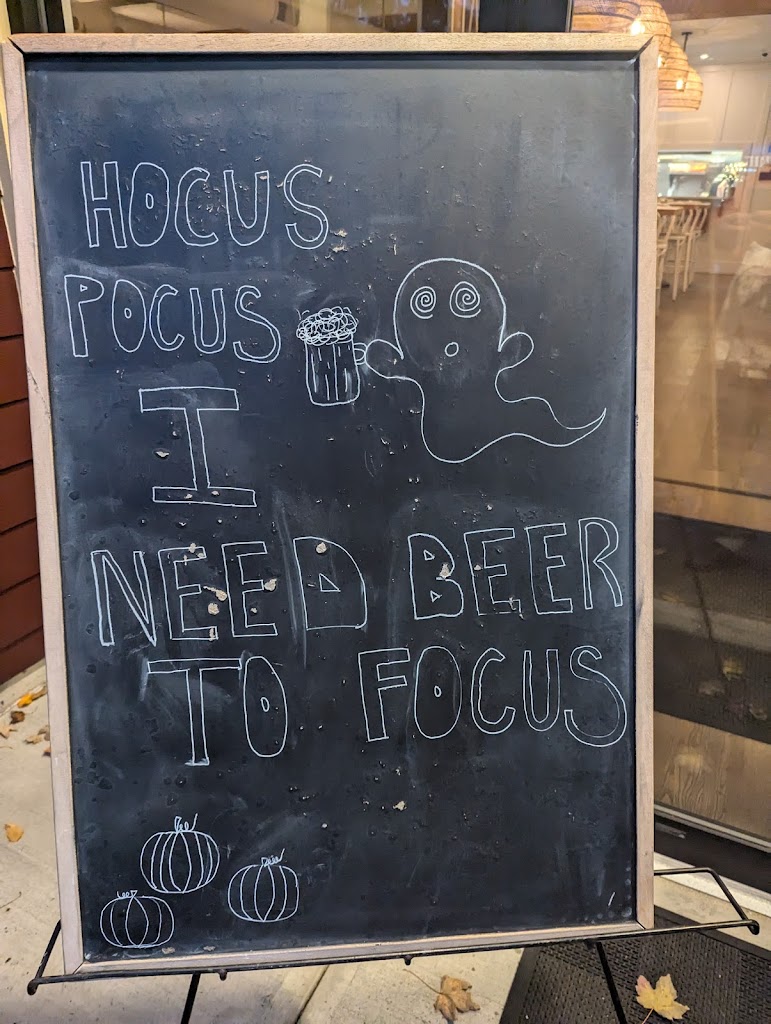 HOCUS
POCUS
I
NEED BEER
TO FOCUS